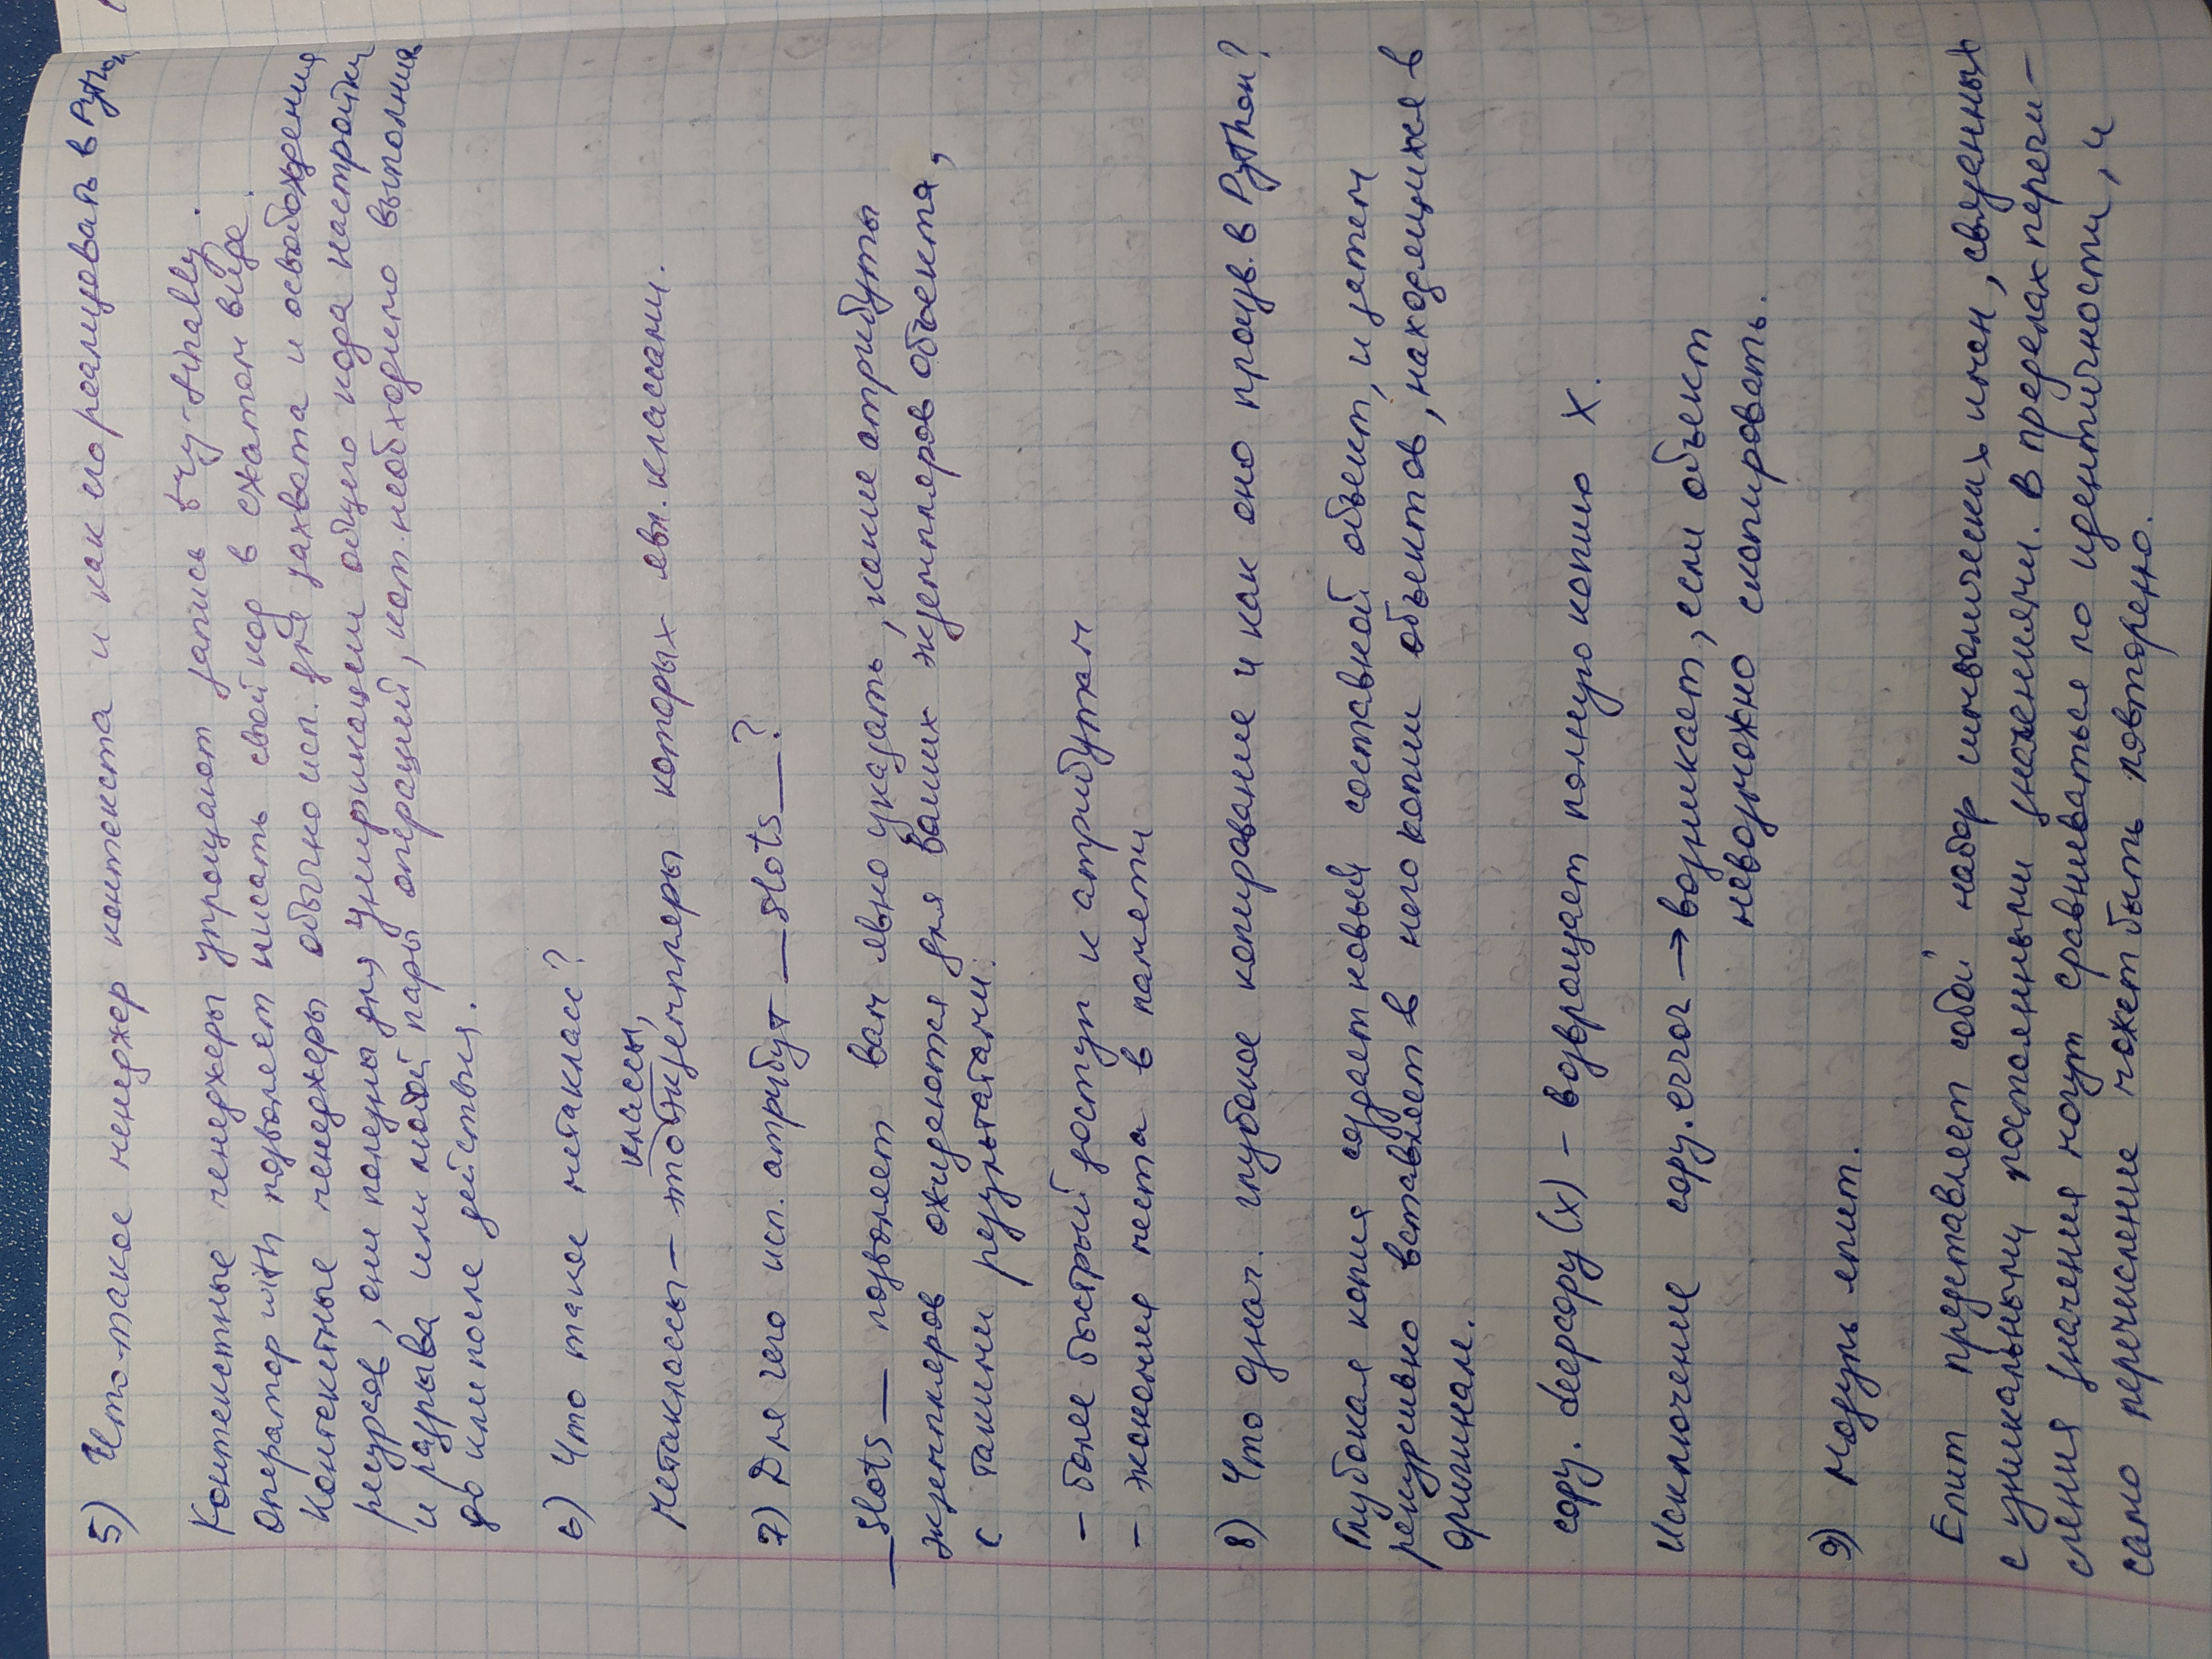 5) Что такое менеджер контекста и как его реализовать в Python
Контекстные менеджеры упрощают запись try-finally.
Оператор with позволяет писать свой код в сжатом виде.
Контекстные менеджеры обычно исп. для захвата и освобождения
ресурсов, они полезны для унификации общего кода настройки
и разрыва или любой пары операций, кот. необходимо выполнить
до или после действия.
6) Что такое метакласс?
классы,
Метаклассы – это экземпляры которых явл. классами.
7) Для чего исп. атрибут __slots__?
__slots__ позволяет вам явно указать, какие атрибуты
экземпляров ожидаются для ваших экземпляров объекта,
с такими результатами:
– более быстрый доступ к атрибутам
– экономия места в памяти
8) Что означ. глубокое копирование и как оно произв. в Python?
Глубокая копия создает новый составной объект, и затем
рекурсивно вставляет в него копии объектов, находящихся в
оригинале.
copy.deepcopy(x) – возвращает полную копию x.
Исключение copy.error → возникает, если объект
невозможно скопировать.
9) Модуль enum.
Enum представляет собой набор символических имен, связанных
с уникальными постоянными значениями. В пределах перечи-
сления значения могут сравниваться по идентичности, и
само перечисление может быть повторено.